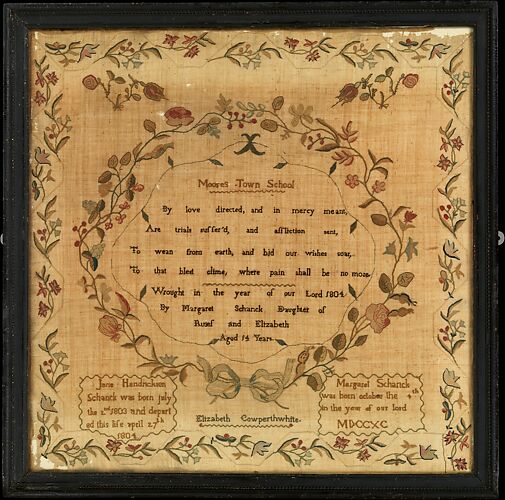 Moores Town School
By love directed, and in mercy meant,
Are trials suffer'd, and affliction sent,
To wean from earth, and bid our wishes soar,
To that blest clime, where pain shall be no more
Wrought in the year of our Lord 1804
By Margaret Schanck Daughter of
Rulef and Elizabeth
Aged 14 Years
Jane Hendrickson
Schanck was born july
the 2nd 1803 and depart
ed this life april 27th
1804
Elizabeth Cowperthwaite.
Margaret Schanck
was born october the th
in the year of our lord
MDCCXC